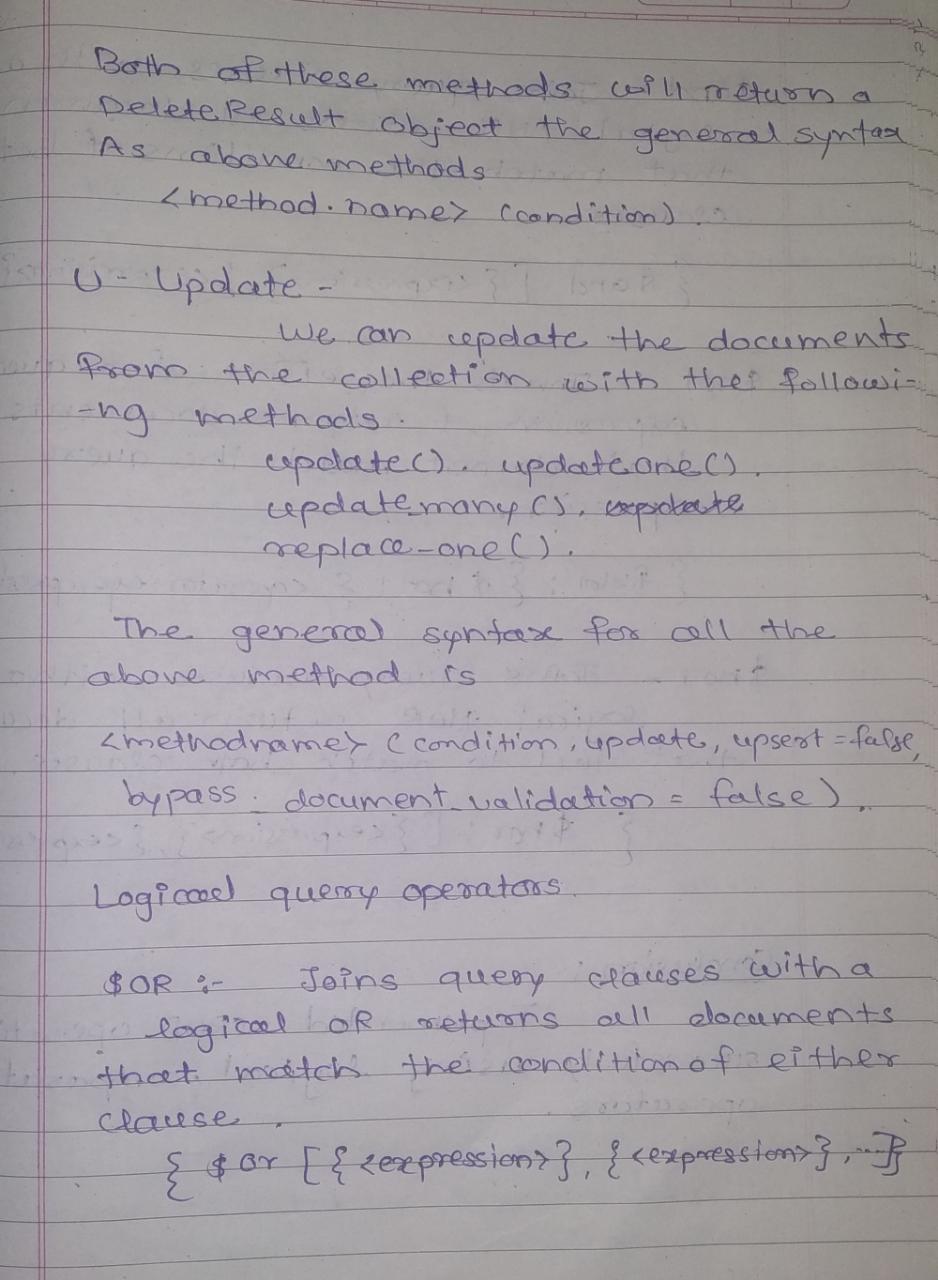 Both of these methods will return a
DeleteResult object the general syntax
As above methods
<method.name> (condition)
U - Update -
We can update the documents
from the collection with the followi-
-ng methods.
update(). updateone().
updatemany(),
replace-one().
The general syntax for all the
above method is
<methodname> (condition, update, upsert = false,
bypass. document_validation = false).
Logical query operators.
$OR :- Joins query clauses with a
logical OR returns all documents
that match the condition of either
clause.
{ $or [{<expression>}, {<expression>}, ...]}